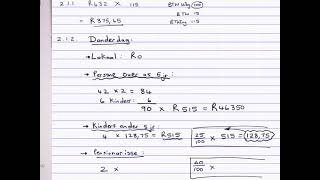 2.1.1 R632 x 115
BTW Weg 100
BTW 15
BTWlg 115
= R375,65
2.1.2. Donderdag:
→ Lokaal: R0
→ Persone over as 5 jr:
42 x 2 = 84
6 Kinders: 6
90 x R515 = R46350
→ Kinders onder 5 jr
4 x 128,75 = R515
25/100 x 515 = 128,75
→ Pensionarisse:
2 x
60/100 x